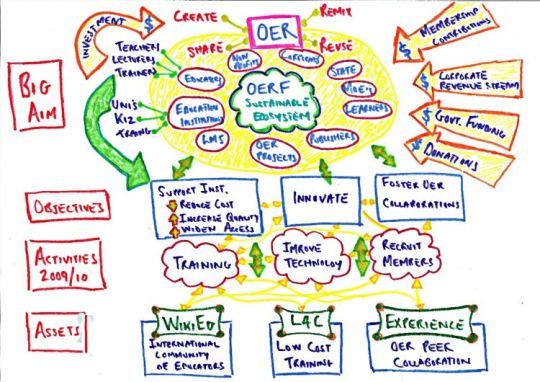 INVESTMENT
$
CREATE
OER
REMIX
SHARE
REUSE
$
MEMBERSHIP
CONTRIBUTIONS
$
CORPORATE
REVENUE STREAM
$
GOVT. FUNDING
$
DONATIONS
BIG
AIM
TEACHERS
LECTURERS
TRAINERS
UNI'S
K12
TRAINING
EDUCATORS
NON
PROFITS
CORPORATE
STATE
MOE'S
LEARNERS
EDUCATION
INSTITUTIONS
OERF
SUSTAINABLE
ECOSYSTEM
LMS
OER
PROJECTS
PUBLISHERS
OBJECTIVES
SUPPORT INST.
REDUCE COST
INCREASE QUALITY
WIDEN ACCESS
INNOVATE
FOSTER OER
COLLABORATIONS
ACTIVITIES
2009/10
TRAINING
IMPROVE
TECHNOLOGY
RECRUIT
MEMBERS
ASSETS
WIKIED
INTERNATIONAL
COMMUNITY
OF EDUCATORS
L4C
LOW COST
TRAINING
EXPERIENCE
OER PEER
COLLABORATION